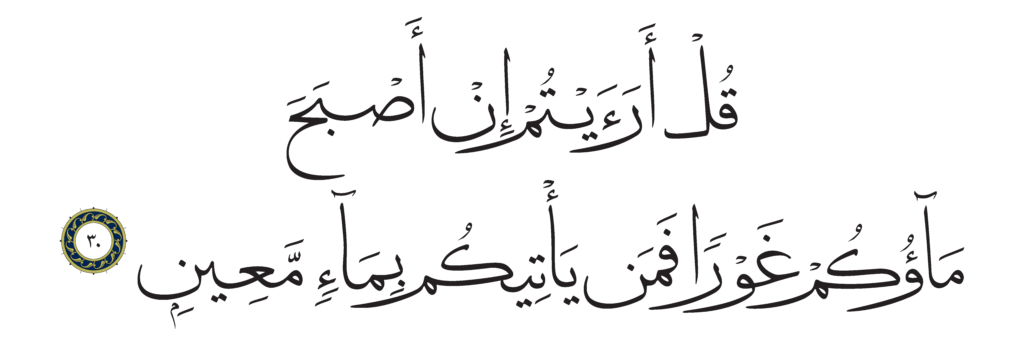 قُلْ أَرَءَيْتُمْ إِنْ أَصْبَحَ
مَآؤُكُمْ غَوْرًا فَمَن يَأْتِيكُم بِمَآءٍ مَّعِينٍۭ ٣٠